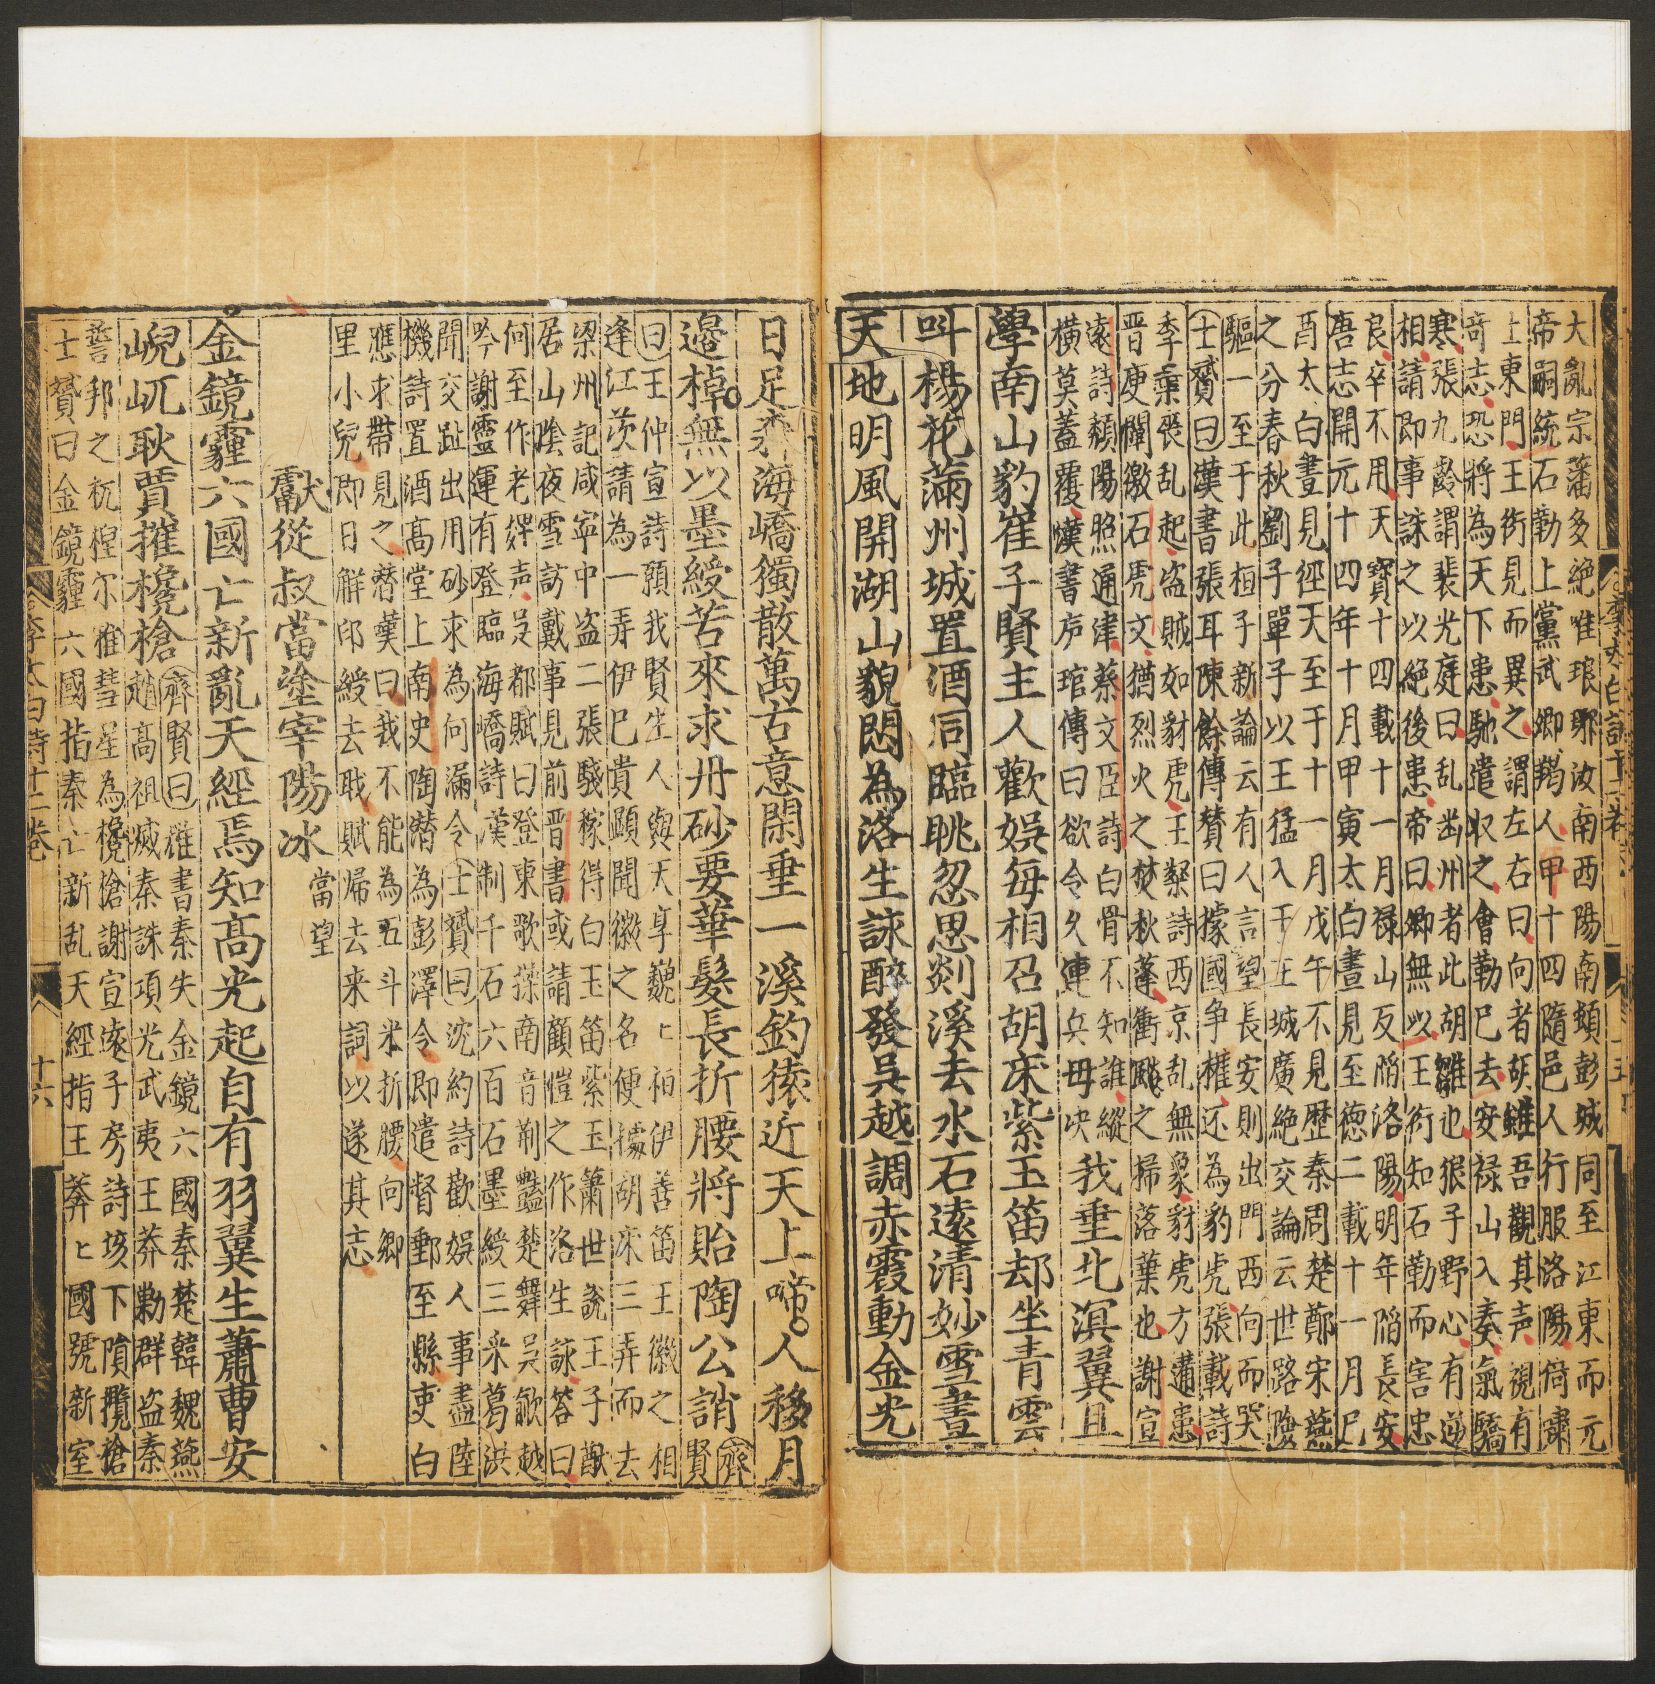 大亂宗藩多絶唯琅琊汝南西陽南頓彭城同至江東而元
帝嗣統石勒上黨武卿羯人甲十四隨邑人行服洛陽倚嘯
上東門王衍見而異之謂左右曰向者胡雛吾觀其声視有
奇志恐將為天下患馳遣収之會勒已去安禄山入奏氣驕
寒張九齡謂裴光庭曰乱幽州者此胡雛也狼子野心有逆
相請即事誅之以絶後患帝曰卿無以王衍知石勒而害忠
良卒不用天寳十四載十一月禄山反陷洛陽明年陷長安
唐志開元十四年十月甲寅太白晝見至德二載十一月巳
酉太白晝見徑天至于十一月戊午不見歷秦周楚鄭宋燕
之分春秋劉子單子以王猛入于王城廣絶交論云世路險
驅一至于此桓子新論云有人言望長安則出門西向而哭
士贇曰漢書張耳陳餘傳賛曰據國争權还為豹虎張載詩
季葉喪乱起盗賊如豺虎王粲詩西京乱無象豺虎方遘患
晋庾闡檄石虎文猶烈火之焚秋蓬衝飈之掃落葉也謝宣
遠詩頹陽照通津蔡文臣詩白骨不知誰縱
橫莫蓋覆漢書房琯傳曰欲令久連兵毋决 我垂北溟翼且
學南山豹崔子賢主人歡娛每相召胡床紫玉笛却坐青雲
呌楊花滿州城置酒同臨眺忽思剡溪去水石遠清妙雪晝
天地明風開湖山貌悶為洛生詠醉發吳越調赤霞動金光
日足森海嶠獨散萬古意閑垂一溪釣猿近天上啼人移月
邊棹無以墨綬苦來求丹砂要華髮長折腰將貽陶公誚 齊賢
曰王仲宣詩願我賢主人與天享巍〻柏伊善笛王徽之相
逢江茨請為一弄伊已貴顯聞徽之名便據胡床三弄而去
梁州記咸寧中盗二張駿稼得白玉笛紫玉簫世說王子猷
居山隂夜雪訪戴事見前晋書或請顧愷之作洛生詠答曰
何至作老婢声吴都賦曰登東歌操南音荆豔楚舞吴歈越
吟謝靈運有登臨海嶠詩漢制千石六百石墨綬三采葛洪
聞交趾出用砂求為句漏令士贇曰沈約詩歡娛人事盡陸
機詩置酒髙堂上南史陶潜為彭澤令即遣督郵至縣吏白
應求帶見之潜嘆曰我不能為五斗米折腰向鄉
里小兒即日解印綬去職賦帰去来詞以遂其志
獻從叔當塗宰陽冰 當塗
金鏡霾六國亡新亂天經焉知髙光起自有羽翼生蕭曹安
峴屼耿賈摧欃槍 齊賢曰雒書秦失金鏡六國秦楚韓魏燕
趙髙祖滅秦誅項光武夷王莽勦群盗秦
誓邦之杌楻尔雅彗星為欃槍謝宣遠子房詩垓下隕攙槍
士贇曰金鏡霾六國指秦亡新乱天經指王莽〻國號新室